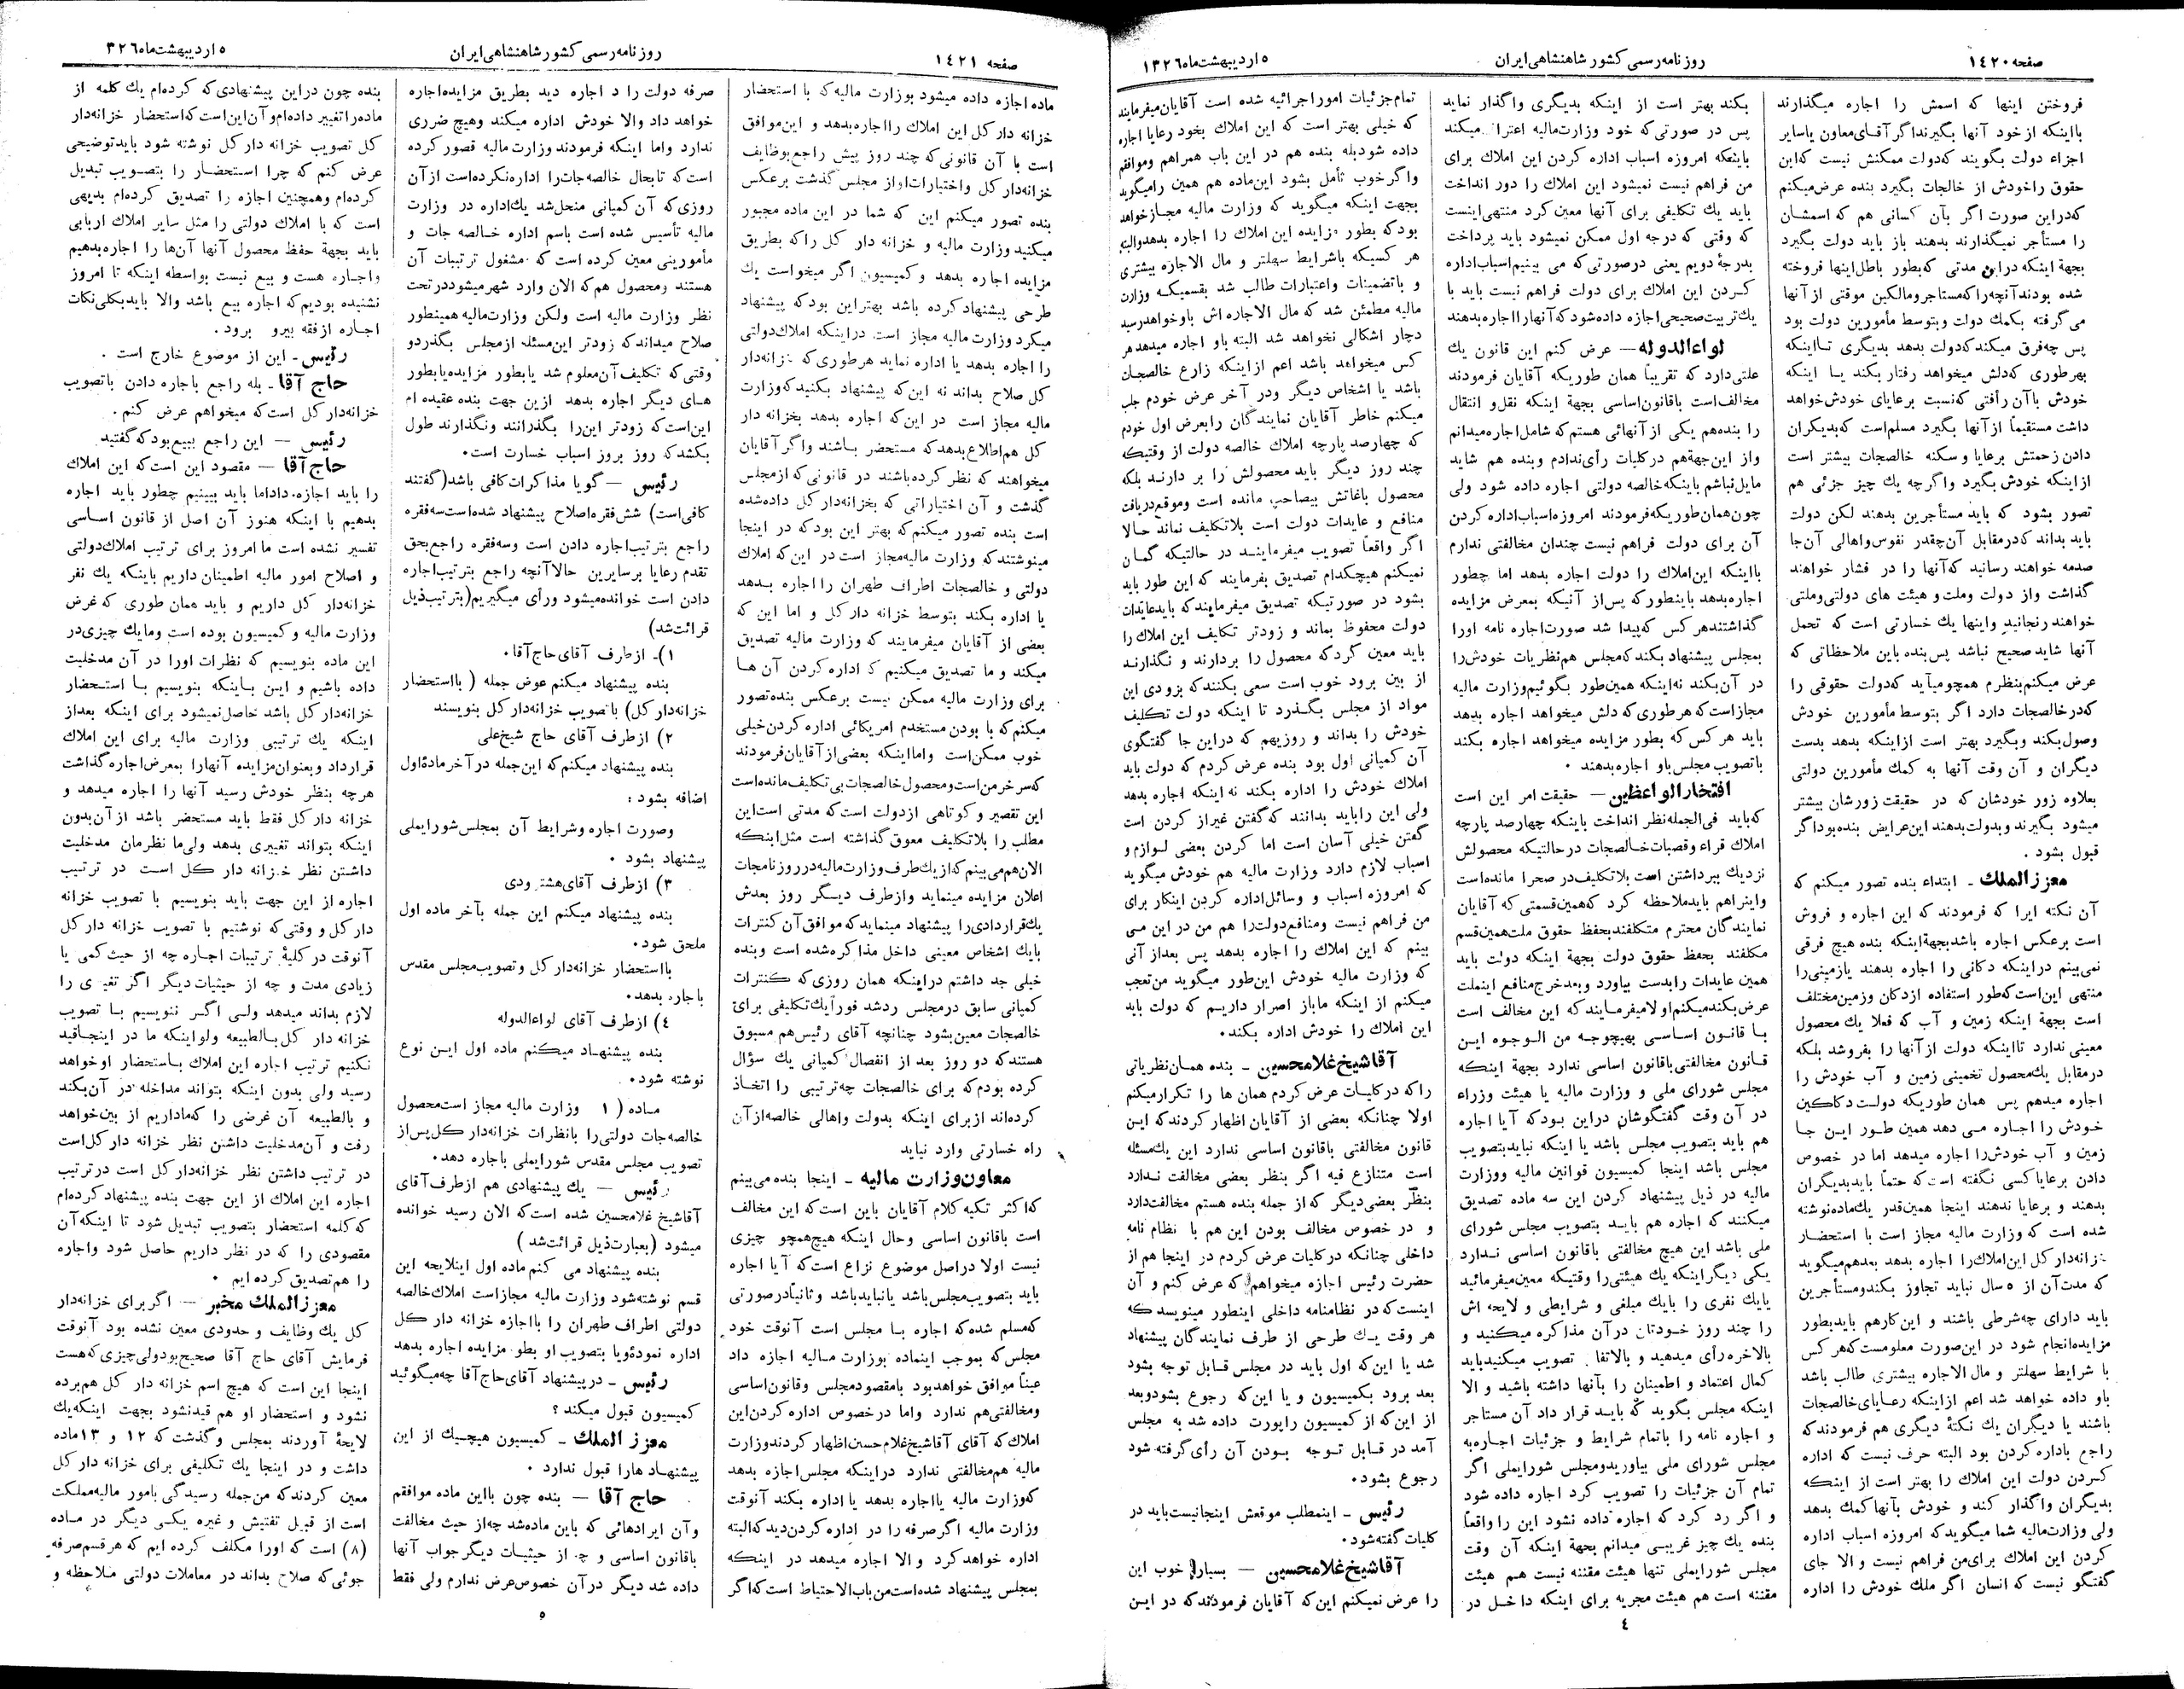 صفحه ۱٤۲۰
روزنامه رسمی کشور شاهنشاهی ایران
٥ اردیبهشت ماه ۱۳۲٦
فروختن اینها که اسمش را اجاره میگذارند
بااینکه از خود آنها بگیرند اگر آقای معاون یا سایر
اجزاء دولت بگویند که دولت ممکنش نیست که این
حقوق را خودش از خالجات بگیرد بنده عرض میکنم
که در این صورت اگر بآن کسانی هم که اسمشان
را مستأجر نمیگذارند بدهند باز باید دولت بگیرد
بجهة اینکه در این مدتی که بطور باطل اینها فروخته
شده بودند آنچه را که مستاجر و مالکین موقتی از آنها
می گرفته بکمك دولت و بتوسط مأمورین دولت بود
پس چه فرق میکند که دولت بدهد بدیگری تا اینکه
بهر طوری که دلش میخواهد رفتار بکند یا اینکه
خودش با آن رأفتی که نسبت برعایای خودش خواهد
داشت مستقیماً از آنها بگیرد مسلم است که بدیگران
دادن زحمتش برعایا و سکنه خالصجات بیشتر است
از اینکه خودش بگیرد و اگر چه یك چیز جزئی هم
تصور بشود که باید مستأجرین بدهند لکن دولت
باید بداند که در مقابل آن چقدر نفوس و اهالی آن جا
صدمه خواهند رسانید که آنها را در فشار خواهند
گذاشت و از دولت و ملت و هیئت های دولتی و ملتی
خواهند رنجانید و اینها یك خسارتی است که تحمل
آنها شاید صحیح نباشد پس بنده باین ملاحظاتی که
عرض میکنم بنظرم همچو میآید که دولت حقوقی را
که در خالصجات دارد اگر بتوسط مأمورین خودش
وصول بکند و بگیرد بهتر است از اینکه بدهد بدست
دیگران و آن وقت آنها به کمك مأمورین دولتی
بعلاوه زور خودشان که در حقیقت زورشان بیشتر
میشود بگیرند و بدولت بدهند این عرایض بنده بود اگر
قبول بشود .
معزز الملك ـ ابتداء بنده تصور میکنم که
آن نکته ایرا که فرمودند که این اجاره و فروش
است برعکس اجاره باشد بجهة اینکه بنده هیچ فرقی
نمی بینم در اینکه دکانی را اجاره بدهند یا زمینی را
منتهی این است که طور استفاده از دکان و زمین مختلف
است بجهة اینکه زمین و آب که فعلا یك محصول
معینی ندارد تا اینکه دولت از آنها را بفروشد بلکه
در مقابل یك محصول تخمینی زمین و آب خودش را
اجاره میدهم پس همان طوریکه دولت دکاکین
خودش را اجاره می دهد همین طور این جا
زمین و آب خودش را اجاره میدهد اما در خصوص
دادن برعایا کسی نگفته است که حتماً باید بدیگران
بدهند و برعایا ندهند اینجا همین قدر یك ماده نوشته
شده است که وزارت مالیه مجاز است با استحضار
خزانه دار کل این املاك را اجاره بدهد بعد هم میگوید
که مدت آن از ٥ سال نباید تجاوز بکند و مستأجرین
باید دارای چه شرطی باشند و این کار هم باید بطور
مزایده انجام شود در این صورت معلومست که هر کس
با شرایط سهلتر و مال الاجاره بیشتری طالب باشد
باو داده خواهد شد اعم از اینکه رعایای خالصجات
باشند یا دیگران یك نکتهٔ دیگری هم فرمودند که
راجع باداره کردن بود البته حرف نیست که اداره
کردن دولت این املاك را بهتر است از اینکه
بدیگران واگذار کند و خودش بآنها کمك بدهد
ولی وزارت مالیه شما میگوید که امروزه اسباب اداره
کردن این املاك برای من فراهم نیست و الا جای
گفتگو نیست که انسان اگر ملك خودش را اداره
بکند بهتر است از اینکه بدیگری واگذار نماید
پس در صورتی که خود وزارت مالیه میکند
باینکه امروزه اسباب اداره کردن این املاك برای
من فراهم نیست نمیشود این املاك را دور انداخت
باید یك تکلیفی برای آنها معین کرد منتهی اینست
که وقتی که درجه اول ممکن نمیشود باید پرداخت
بدرجهٔ دویم یعنی در صورتی که می بینیم اسباب اداره
کردن این املاك برای دولت فراهم نیست باید با
یك تربیت صحیحی اجازه داده شود که آنها را اجاره بدهند
لواء الدوله ـ عرض کنم این قانون یك
علتی دارد که تقریباً همان طوریکه آقایان فرمودند
مخالف است باقانون اساسی بجهة اینکه نقل و انتقال
را بنده هم یکی از آنهائی هستم که شامل اجاره میدانم
و از این جهة هم در کلیات رأی ندادم و بنده هم شاید
مایل نباشم باینکه خالصه دولتی اجاره داده شود ولی
چون همان طوریکه فرمودند امروزه اسباب اداره کردن
آن برای دولت فراهم نیست چندان مخالفتی ندارم
با اینکه این املاك را دولت اجاره بدهد اما چطور
اجاره بدهد باینطور که پس از آنیکه بمعرض مزایده
گذاشتند هر کس که پیدا شد صورت اجاره نامه اورا
بمجلس پیشنهاد بکند که مجلس هم نظریات خودش را
در آن بکند نه اینکه همین طور بگوئیم وزارت مالیه
مجاز است که هر طوری که دلش میخواهد اجاره بدهد
باید هر کس که بطور مزایده میخواهد اجاره بکند
با تصویب مجلس باو اجاره بدهند .
افتخار الواعظین ـ حقیقت امر این است
که باید فی الجمله نظر انداخت باینکه چهار صد پارچه
املاك قراء و قصبات خالصجات در حالتیکه محصولش
نزدیك ببرداشتن است بلا تکلیف در صحرا مانده است
و اینرا هم باید ملاحظه کرد که همین قسمتی که آقایان
نمایندگان محترم متکلفند بحفظ حقوق ملت همین قسم
مکلفند بحفظ حقوق دولت بجهة اینکه دولت باید
همین عایدات را بدست بیاورد و بعد خرج منافع اینملت
عرض بکند میکنم اولا میفرمایند که این مخالف است
با قانون اساسی بهیچوجه من الوجوه این
قانون مخالفتی باقانون اساسی ندارد بجهة اینکه
مجلس شورای ملی و وزارت مالیه یا هیئت وزراء
در آن وقت گفتگوشان در این بود که آیا اجاره
هم باید بتصویب مجلس باشد یا اینکه نباید بتصویب
مجلس باشد اینجا کمیسیون قوانین مالیه و وزارت
مالیه در ذیل پیشنهاد کردن این سه ماده تصدیق
میکنند که اجاره هم باید بتصویب مجلس شورای
ملی باشد این هیچ مخالفتی باقانون اساسی ندارد
یکی دیگر اینکه یك هیئتی را وقتیکه معین میفرمائید
یا یك نفری را بایك مبلغی و شرایطی و لایحه اش
را چند روز خودتان در آن مذاکره میکنید و
بالاخره رأی میدهید و بالاتفاق تصویب میکنید باید
کمال اعتماد و اطمینان را بآنها داشته باشید و الا
اینکه مجلس بگوید که باید قرار داد آن مستاجر
و اجاره نامه را باتمام شرایط و جزئیات اجاره به
مجلس شورای ملی بیاورید و مجلس شورایملی اگر
تمام آن جزئیات را تصویب کرد اجاره داده شود
و اگر رد کرد که اجاره داده نشود این را واقعاً
بنده یك چیز غریبی میدانم بجهة اینکه آن وقت
مجلس شورایملی تنها هیئت مقننه نیست هم هیئت
مقننه است هم هیئت مجریه برای اینکه داخل در
تمام جزئیات امور اجرائیه شده است آقایان میفرمایند
که خیلی بهتر است که این املاك بخود رعایا اجاره
داده شود بله بنده هم در این باب همراهم و موافقم
و اگر خوب تأمل بشود این ماده هم همین را میگوید
بجهت اینکه میگوید که وزارت مالیه مجاز خواهد
بود که بطور مزایده این املاك را اجاره بدهد و البته
هر کسیکه باشرایط سهلتر و مال الاجازه بیشتری
و با تضمینات و اعتبارات طالب شد بقسمیکه وزارت
مالیه مطمئن شد که مال الاجاره اش باو خواهد رسید
دچار اشکالی نخواهد شد البته باو اجاره میدهد هر
کس میخواهد باشد اعم از اینکه زارع خالصجان
باشد یا اشخاص دیگر و در آخر عرض خودم جلب
میکنم خاطر آقایان نمایندگان را بعرض اول خودم
که چهارصد پارچه املاك خالصه دولت از وقتیکه
چند روز دیگر باید محصولش را بر دارند بلکه
محصول باغاتش بیصاحب مانده است و موقع دریافت
منافع و عایدات دولت است بلا تکلیف نماند حالا
اگر واقعاً تصویب میفرمایند در حالتیکه گمان
نمیکنم هیچکدام تصدیق بفرمایند که این طور باید
بشود در صورتیکه تصدیق میفرمایند که باید عایدات
دولت محفوظ بماند و زودتر تکلیف این املاك را
باید معین کرد که محصول را بردارند و نگذارند
از بین برود خوب است سعی بکنند که بزودی این
مواد از مجلس بگذرد تا اینکه دولت تکلیف
خودش را بداند و روزیهم که در این جا گفتگوی
آن کمپانی اول بود بنده عرض کردم که دولت باید
املاك خودش را اداره بکند نه اینکه اجاره بدهد
ولی این را باید بدانند که گفتن غیر از کردن است
گفتن خیلی آسان است اما کردن بعضی لوازم و
اسباب لازم دارد وزارت مالیه هم خودش میگوید
که امروزه اسباب و وسائل اداره کردن اینکار برای
من فراهم نیست و منافع دولت را هم من در این می
بینم که این املاك را اجاره بدهد پس بعد از آنی
که وزارت مالیه خودش این طور میگوید من تعجب
میکنم از اینکه ماباز اصرار داریم که دولت باید
این املاك را خودش اداره بکند.
آقا شیخ غلامحسین ـ بنده همان نظریاتی
را که در کلیات عرض کردم همان ها را تکرار میکنم
اولا چنانکه بعضی از آقایان اظهار کردند که این
قانون مخالفتی باقانون اساسی ندارد این یك مسئله
است متنازع فیه اگر بنظر بعضی مخالفت ندارد
بنظر بعضی دیگر که از جمله بنده هستم مخالفت دارد
و در خصوص مخالف بودن این هم با نظام نامه
داخلی چنانکه در کلیات عرض کردم در اینجا هم از
حضرت رئیس اجازه میخواهم که عرض کنم و آن
اینست که در نظامنامه داخلی اینطور مینویسد که
هر وقت یك طرحی از طرف نمایندگان پیشنهاد
شد یا این که اول باید در مجلس قابل توجه بشود
بعد برود بکمیسیون و یا این که رجوع بشود و بعد
از این که از کمیسیون راپورت داده شد به مجلس
آمد در قابل توجه بودن آن رأی گرفته شود
رجوع بشود.
رئیس ـ اینمطلب موقعش اینجا نیست باید در
کلیات گفته شود.
آقا شیخ غلامحسین ـ بسیار خوب این
را عرض نمیکنم این که آقایان فرمودند که در این
٤
صفحه ۱٤۲۱
روزنامه رسمی کشور شاهنشاهی ایران
٥ اردیبهشت ماه ۳۲٦
ماده اجازه داده میشود بوزارت مالیه که با استحضار
خزانه دار کل این املاك را اجاره بدهد و این موافق
است با آن قانونی که چند روز پیش راجع بوظایف
خزانه دار کل و اختیارات او از مجلس گذشت برعکس
بنده تصور میکنم این که شما در این ماده مجبور
میکنید وزارت مالیه و خزانه دار کل را که بطریق
مزایده اجاره بدهد و کمیسیون اگر میخواست یك
طرحی پیشنهاد کرده باشد بهتر این بود که پیشنهاد
میکرد وزارت مالیه مجاز است در اینکه املاك دولتی
را اجاره بدهد یا اداره نماید هر طوری که خزانه دار
کل صلاح بداند نه این که پیشنهاد بکنید که وزارت
مالیه مجاز است در این که اجاره بدهد بخزانه دار
کل هم اطلاع بدهد که مستحضر باشند و اگر آقایان
میخواهند که نظر کرده باشند در قانونی که از مجلس
گذشت و آن اختیاراتی که بخزانه دار کل داده شده
است بنده تصور میکنم که بهتر این بود که در اینجا
مینوشتند که وزارت مالیه مجاز است در این که املاك
دولتی و خالصجات اطراف طهران را اجاره بدهد
یا اداره بکند بتوسط خزانه دار کل و اما این که
بعضی از آقایان میفرمایند که وزارت مالیه تصدیق
میکند و ما تصدیق میکنیم که اداره کردن آن ها
برای وزارت مالیه ممکن نیست برعکس بنده تصور
میکنم که با بودن مستخدم امریکائی اداره کردن خیلی
خوب ممکن است و اما اینکه بعضی از آقایان فرمودند
که سر خرمن است و محصول خالصجات بی تکلیف مانده است
این تقصیر و کوتاهی از دولت است که مدتی است این
مطلب را بلا تکلیف معوق گذاشته است مثل اینکه
الان هم می بینم که از یك طرف وزارت مالیه در روزنامجات
اعلان مزایده مینماید و از طرف دیگر روز بعدش
یك قراردادی را پیشنهاد مینماید که موافق آن کنترات
بایك اشخاص معینی داخل مذاکره شده است و بنده
خیلی جد داشتم در اینکه همان روزی که کنترات
کمپانی سابق در مجلس رد شد فوراً یك تکلیفی برای
خالصجات معین بشود چنانچه آقای رئیس هم مسبوق
هستند که دو روز بعد از انفصال کمپانی یك سؤال
کرده بودم که برای خالصجات چه ترتیبی را اتخاذ
کرده اند از برای اینکه بدولت و اهالی خالصه از آن
راه خسارتی وارد نیاید
معاون وزارت مالیه ـ اینجا بنده می بینم
که اکثر تکیه کلام آقایان باین است که این مخالف
است باقانون اساسی و حال اینکه هیچ همچو چیزی
نیست اولا در اصل موضوع نزاع است که آیا اجاره
باید بتصویب مجلس باشد یا نباید باشد و ثانیاً در صورتی
که مسلم شده که اجاره با مجلس است آنوقت خود
مجلس که بموجب اینماده بوزارت مالیه اجازه داد
عیناً موافق خواهد بود بامقصود مجلس و قانون اساسی
و مخالفتی هم ندارد و اما در خصوص اداره کردن این
املاك که آقای آقا شیخ غلامحسین اظهار کردند وزارت
مالیه هم مخالفتی ندارد در اینکه مجلس اجازه بدهد
که وزارت مالیه یا اجاره بدهد یا اداره بکند آنوقت
وزارت مالیه اگر صرفه را در اداره کردن دید که البته
اداره خواهد کرد و الا اجاره میدهد در اینکه
بمجلس پیشنهاد شده است من باب الاحتیاط است که اگر
صرفه دولت را در اجاره دید بطریق مزایده اجاره
خواهد داد والا خودش اداره میکند و هیچ ضرری
ندارد و اما اینکه فرمودند وزارت مالیه قصور کرده
است که تابحال خالصه جات را اداره نکرده است از آن
روزی که آن کمپانی منحل شد یك اداره در وزارت
مالیه تأسیس شده است باسم اداره خالصه جات و
مأمورینی معین کرده است که مشغول ترتیبات آن
هستند و محصول هم که الان وارد شهر میشود در تحت
نظر وزارت مالیه است ولکن وزارت مالیه همینطور
صلاح میداند که زودتر این مسئله از مجلس بگذرد و
وقتی که تکلیف آن معلوم شد یا بطور مزایده یا بطور
های دیگر اجاره بدهد از این جهت بنده عقیده ام
این است که زودتر این را بگذرانند و نگذارند طول
بکشد که روز بروز اسباب خسارت است.
رئیس ـ گویا مذاکرات کافی باشد (گفتند
کافی است) شش فقره اصلاح پیشنهاد شده است سه فقره
راجع بترتیب اجاره دادن است و سه فقره راجع بحق
تقدم رعایا بر سایرین حالا آنچه راجع بترتیب اجاره
دادن است خوانده میشود و رأی میگیریم (بترتیب ذیل
قرائت شد)
۱)ـ از طرف آقای حاج آقا.
بنده پیشنهاد میکنم عوض جمله ( بااستحضار
خزانه دار کل) با تصویب خزانه دار کل بنویسند
۲) از طرف آقای حاج شیخ علی
بنده پیشنهاد میکنم که این جمله در آخر مادهٔ اول
اضافه بشود :
و صورت اجاره و شرایط آن بمجلس شورایملی
پیشنهاد بشود .
۳) از طرف آقای هشترودی
بنده پیشنهاد میکنم این جمله بآخر ماده اول
ملحق شود.
بااستحضار خزانه دار کل و تصویب مجلس مقدس
باجاره بدهد.
٤) از طرف آقای لواء الدوله
بنده پیشنهاد میکنم ماده اول این نوع
نوشته شود.
ماده ( ۱ وزارت مالیه مجاز است محصول
خالصه جات دولتی را بانظرات خزانه دار کل پس از
تصویب مجلس مقدس شورایملی باجاره دهد.
رئیس ـ یك پیشنهادی هم از طرف آقای
آقا شیخ غلامحسین شده است که الان رسید خوانده
میشود (بعبارت ذیل قرائت شد )
بنده پیشنهاد می کنم ماده اول اینلایحه این
قسم نوشته شود وزارت مالیه مجاز است املاك خالصه
دولتی اطراف طهران را بااجازه خزانه دار کل
اداره نموده و یا بتصویب او بطور مزایده اجاره بدهد
رئیس ـ در پیشنهاد آقای حاج آقا چه میگوئید
کمیسیون قبول میکند ؟
معزز الملك ـ کمیسیون هیچیك از این
پیشنهاد هارا قبول ندارد .
حاج آقا ـ بنده چون بااین ماده موافقم
وآن ایرادهائی که باین ماده شد چه از حیث مخالفت
باقانون اساسی و چه از حیثیات دیگر جواب آنها
داده شد دیگر در آن خصوص عرض ندارم ولی فقط
بنده چون در این پیشنهادی که کرده ام یك کلمه از
ماده را تغییر داده ام و آن این است که استحضار خزانه دار
کل تصویب خزانه دار کل نوشته شود باید توضیحی
عرض کنم که چرا استحضار را بتصویب تبدیل
کرده ام و همچنین اجازه را تصدیق کرده ام بدیهی
است که با املاك دولتی را مثل سایر املاك اربابی
باید بجهة حفظ محصول آنها آن ها را اجاره بدهیم
و اجاره هست و بیع نیست بواسطه اینکه تا امروز
نشنیده بودیم که اجاره بیع باشد والا باید بکلی نکات
اجاره از فقه بیرو برود.
رئیس ـ این از موضوع خارج است .
حاج آقا ـ بله راجع باجاره دادن باتصویب
خزانه دار کل است که میخواهم عرض کنم .
رئیس ـ این راجع ببیع بود که گفتید
حاج آقا ـ مقصود این است که این املاك
را باید اجازه داد اما باید ببینیم چطور باید اجاره
بدهیم با اینکه هنوز آن اصل از قانون اساسی
تفسیر نشده است ما امروز برای ترتیب املاك دولتی
و اصلاح امور مالیه اطمینان داریم باینکه یك نفر
خزانه دار کل داریم و باید همان طوری که غرض
وزارت مالیه و کمیسیون بوده است و ما یك چیزی در
این ماده بنویسیم که نظرات اورا در آن مدخلیت
داده باشیم و این باینکه بنویسیم با استحضار
خزانه دار کل باشد حاصل نمیشود برای اینکه بعد از
اینکه یك ترتیبی وزارت مالیه برای این املاك
قرار داد و بعنوان مزایده آنها را بمعرض اجاره گذاشت
هر چه بنظر خودش رسید آنها را اجاره میدهد و
خزانه دار کل فقط باید مستحضر باشد از آن بدون
اینکه بتواند تغییری بدهد ولی ما نظرمان مدخلیت
داشتن نظر خزانه دار کل است در ترتیب
اجاره از این جهت باید بنویسیم با تصویب خزانه
دار کل و وقتی که نوشتیم با تصویب خزانه دار کل
آنوقت در کلیهٔ ترتیبات اجاره چه از حیث کمی یا
زیادی مدت و چه از حیثیات دیگر اگر تغییری را
لازم بداند میدهد ولی اگر ننویسیم با تصویب
خزانه دار کل بالطبیعه ولو اینکه ما در اینجا قید
نکنیم ترتیب اجاره این املاك باستحضار او خواهد
رسید ولی بدون اینکه بتواند مداخله در آن بکند
و بالطبیعه آن غرضی را که ما داریم از بین خواهد
رفت و آن مدخلیت داشتن نظر خزانه دار کل است
در ترتیب داشتن نظر خزانه دار کل است در ترتیب
اجاره این املاك از این جهت بنده پیشنهاد کرده ام
که کلمه استحضار بتصویب تبدیل شود تا اینکه آن
مقصودی را که در نظر داریم حاصل شود و اجاره
را هم تصدیق کرده ایم .
معزز الملك مخبر ـ اگر برای خزانه دار
کل یك وظایف و حدودی معین نشده بود آنوقت
فرمایش آقای حاج آقا صحیح بود ولی چیزی که هست
اینجا این است که هیچ اسم خزانه دار کل هم برده
نشود و استحضار او هم قید نشود بجهت اینکه یك
لایحهٔ آوردند بمجلس و گذشت که ۱۲ و ۱۳ ماده
داشت و در اینجا یك تکلیفی برای خزانه دار کل
معین کردند که من جمله رسیدگی بامور مالیه مملکت
است از قبیل تفتیش و غیره یکی دیگر در ماده
(۸) است که اورا مکلف کرده ایم که هر قسم صرفه
جوئی که صلاح بداند در معاملات دولتی ملاحظه و
٥